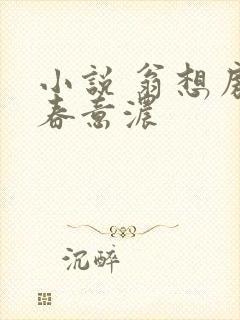 小説 翁想
春意濃
沉醉